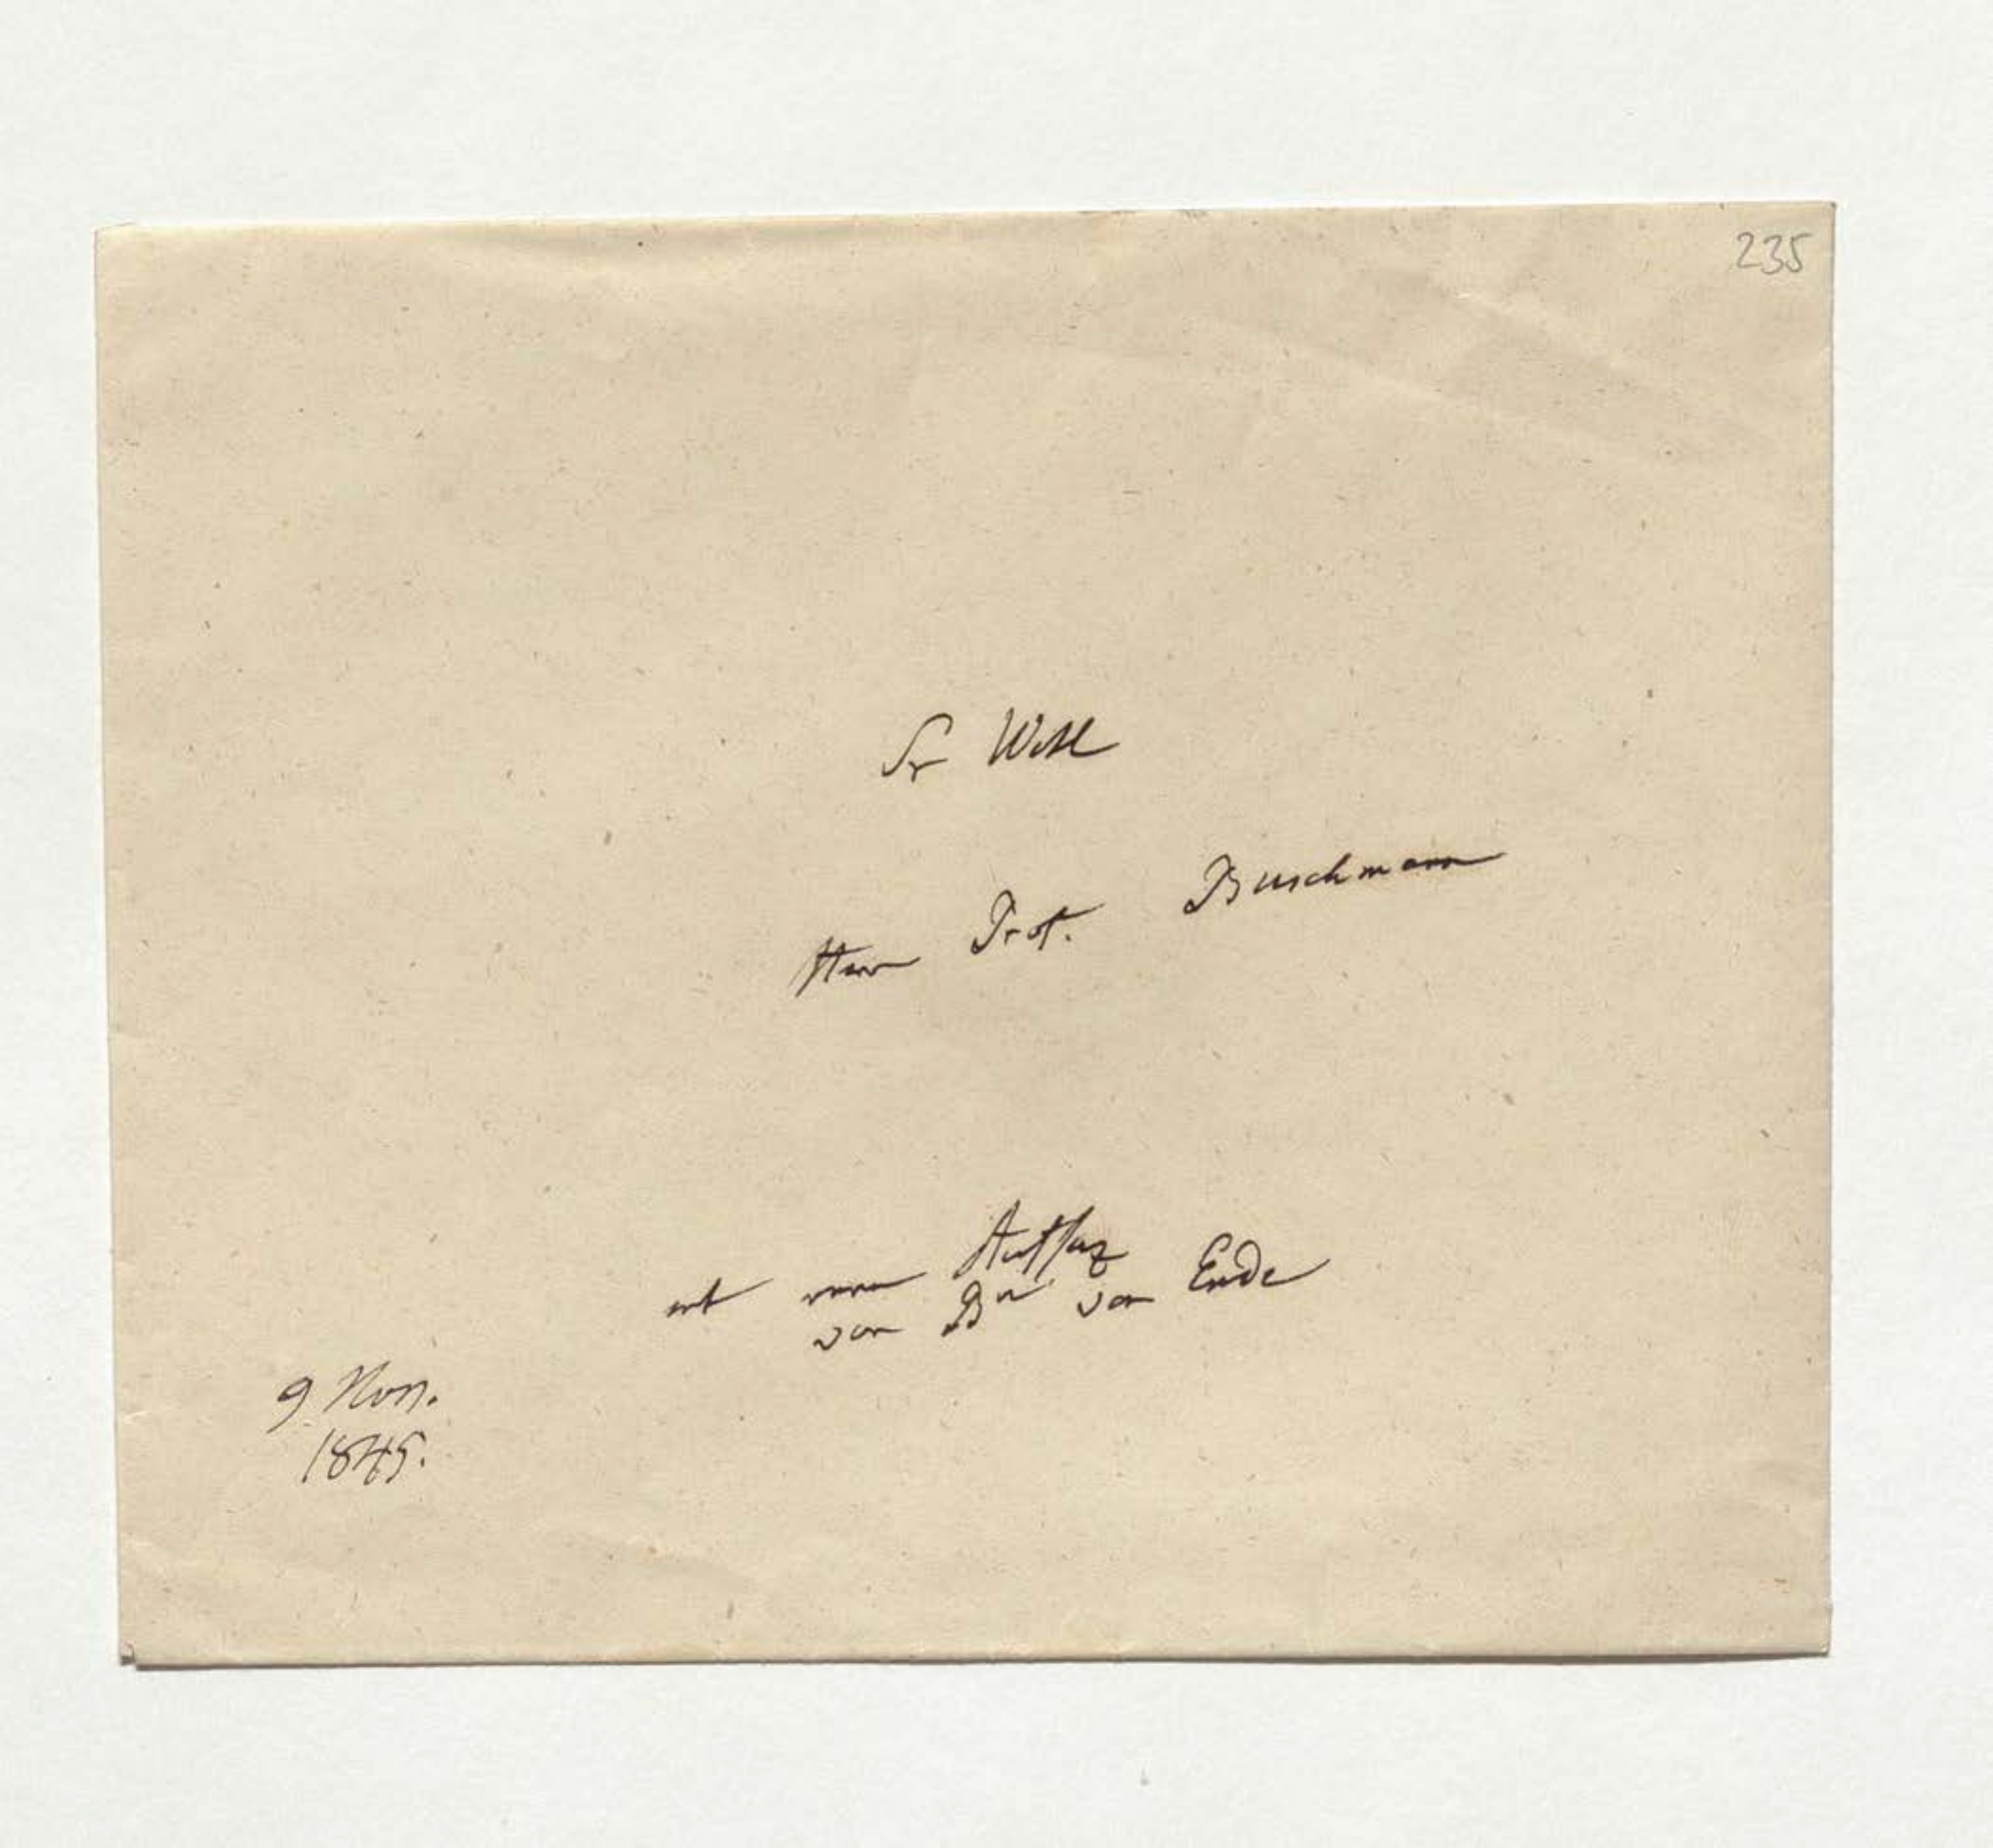 235
Sr Wohl
Herrn Prof. Buschmann
mit einem Aufsaz
von Bn von Ende
9 Nov.
1845.